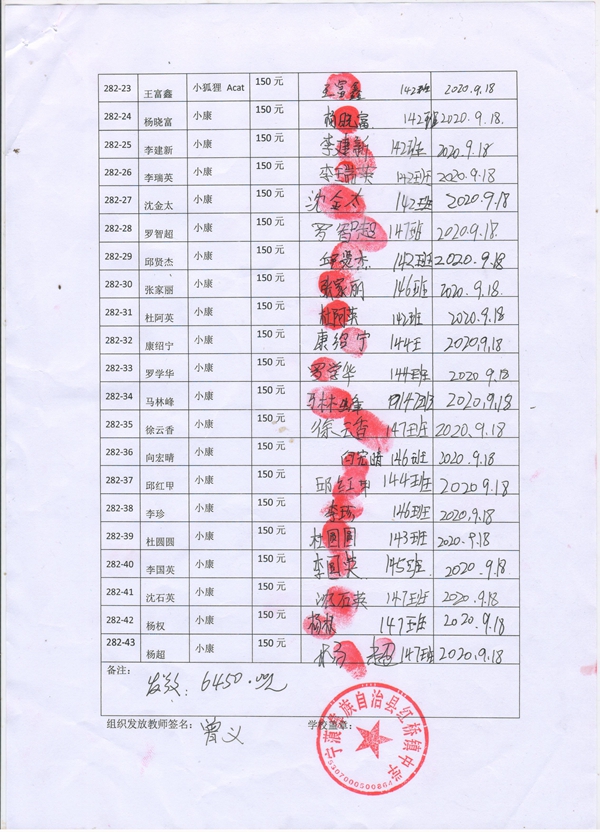 282-23 王富鑫 小狐狸 Acat 150元 王富鑫 142班 2020.9.18
282-24 杨晓富 小康 150元 杨晓富 142班 2020.9.18
282-25 李建新 小康 150元 李建新 142班 2020.9.18
282-26 李瑞英 小康 150元 李瑞英 142班 2020.9.18
282-27 沈金太 小康 150元 沈金太 142班 2020.9.18
282-28 罗智超 小康 150元 罗智超 147班 2020.9.18
282-29 邱贤杰 小康 150元 邱贤杰 142班 2020.9.18
282-30 张家丽 小康 150元 张家丽 146班 2020.9.18
282-31 杜阿英 小康 150元 杜阿英 142班 2020.9.18
282-32 康绍宁 小康 150元 康绍宁 144王 2020.9.18
282-33 罗学华 小康 150元 罗学华 144班 2020.9.18
282-34 马林峰 小康 150元 马林峰 147班 2020.9.18
282-35 徐云香 小康 150元 徐云香 147班 2020.9.18
282-36 向宏晴 小康 150元 向宏晴 146班 2020.9.18
282-37 邱红甲 小康 150元 邱红甲 144班 2020.9.18
282-38 李珍 小康 150元 李珍 146班 2020.9.18
282-39 杜圆圆 小康 150元 杜圆圆 143班 2020.9.18
282-40 李国英 小康 150元 李国英 145班 2020.9.18
282-41 沈石英 小康 150元 沈石英 147班 2020.9.18
282-42 杨权 小康 150元 杨权 147班 2020.9.18
282-43 杨超 小康 150元 杨超 147班 2020.9.18
备注:
发放: 6450.00元
组织发放教师签名: 曾义 学校盖章:
宁蒗彝族自治县红桥镇中学